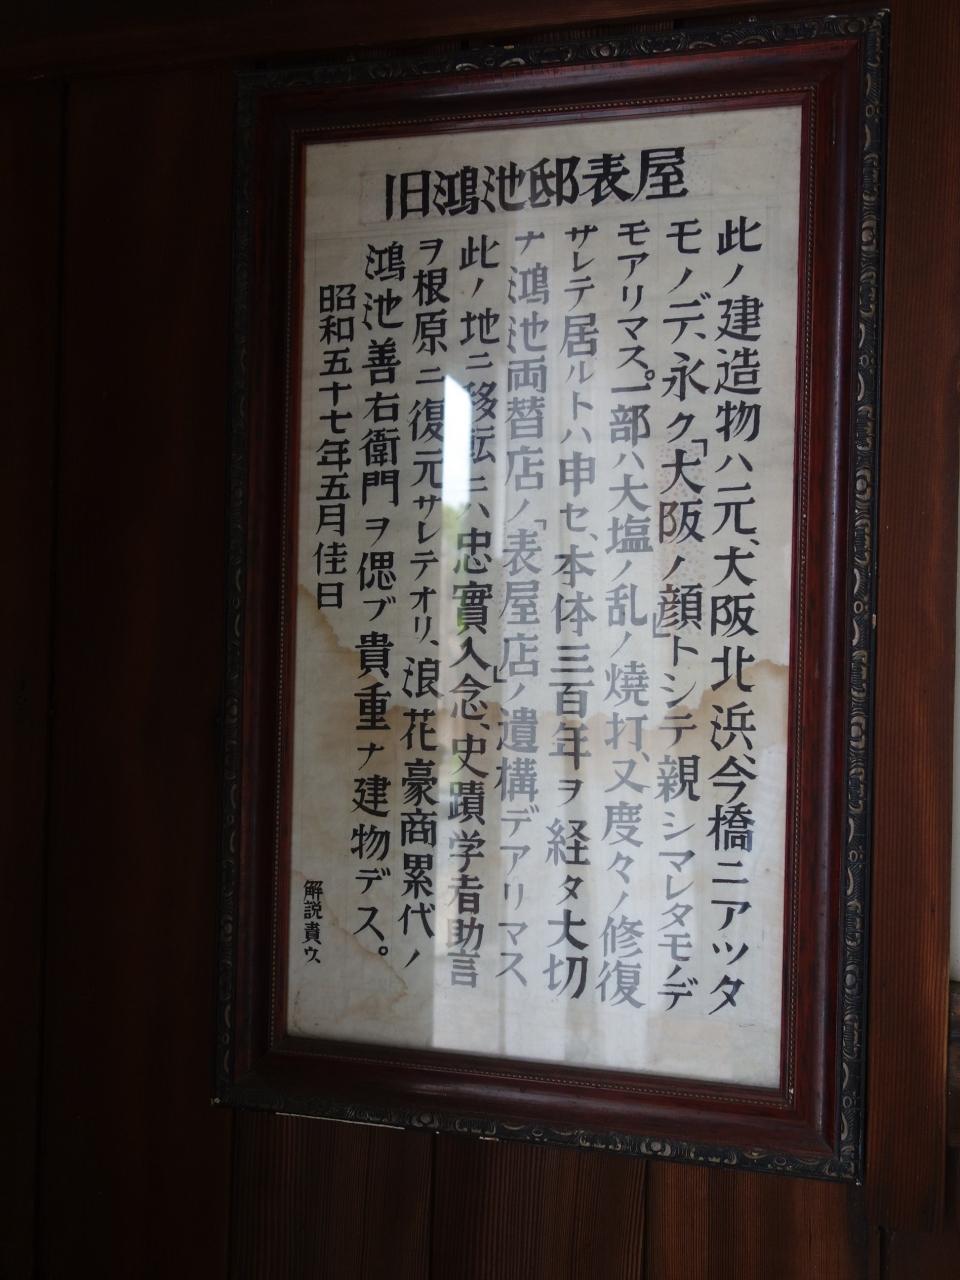 旧鴻池邸表屋
此ノ建造物ハ元、大阪北浜、今橋ニアツタ
モノデ、永ク「大阪ノ顔」トシテ親シマレタモノデ
モアリマス。一部ハ大塩ノ乱ノ焼打、又度々ノ修復
サレテ居ルトハ申セ、本体三百年ヲ経タ大切
ナ鴻池両替店ノ「表屋店」ノ遺構デアリマス
此ノ地ニ移転ニハ忠實入念、史蹟学者助言
ヲ根原ニ復元サレテオリ、浪花豪商累代ノ
鴻池善右衛門ヲ偲ブ貴重ナ建物デス。
昭和五十七年五月佳日
解説責